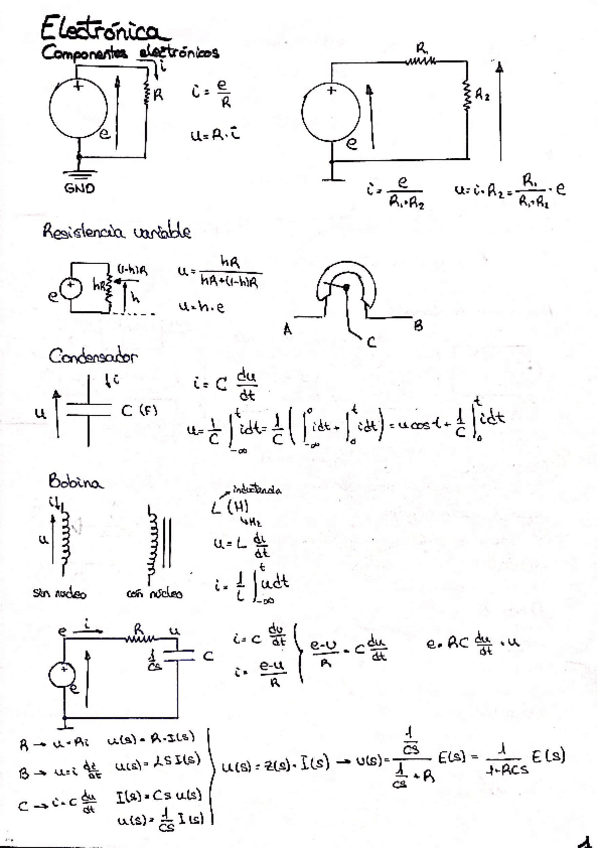 Electrónica
Componentes electrónicos
i
+
e
R
i = e/R
u = R·i
GND
R₁
+
e
R₂
i = e/(R₁+R₂)
u = i·R₂ = R₁/(R₁+R₂) · e
Resistencia variable
e
hR
(1-h)R
h
u = hR/(hR+(1-h)R)
u = h·e
A
B
C
Condensador
u
i
C (F)
i = C du/dt
u = 1/C ∫_{-∞}^{t} idt = 1/C (∫_{-∞}^{0} idt + ∫_{0}^{t} idt) = u cost + 1/C ∫_{0}^{t} idt
Bobina
i
u
sin núcleo
con núcleo
inductancia
L (H)
u = L di/dt
i = 1/L ∫_{-∞}^{t} udt
e
i
R
u
+
e
1/CS
C
i = C du/dt
i = (e-u)/R
(e-u)/R = C du/dt
e = RC du/dt + u
R → u = Ri u(s) = R·I(s)
B → u = i di/dt u(s) = LS I(s)
C → i = C du/dt I(s) = CS u(s)
u(s) = 1/CS I(s)
u(s) = Z(s)·I(s) → U(s) = (1/CS)/(1/CS + R) E(s) = 1/(1+RCS) E(s)
1